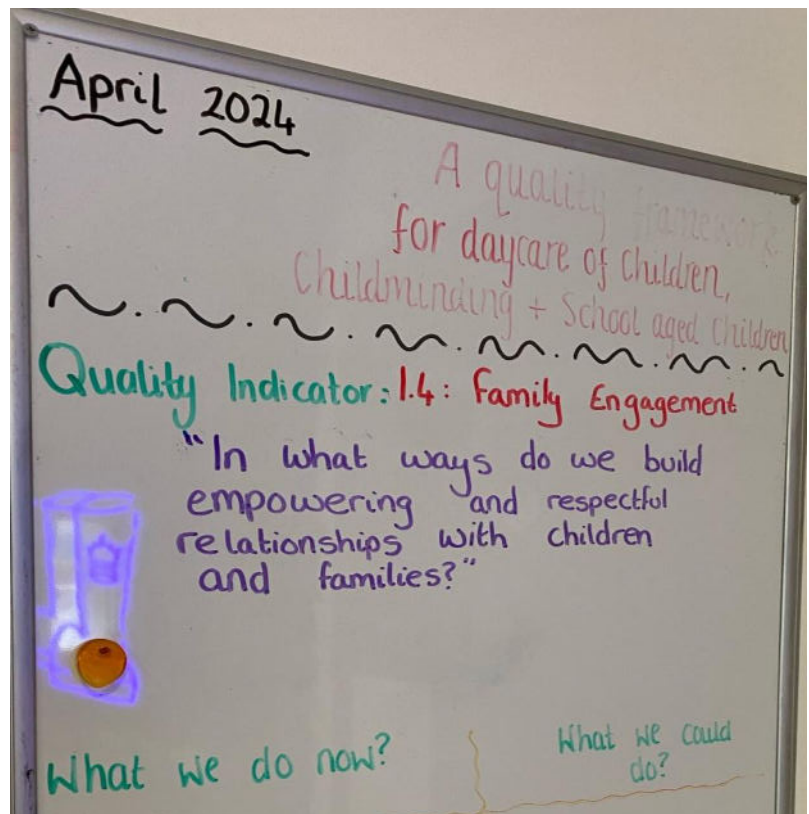 April 2024
A quality framework
for daycare of Children,
Childminding + School aged Children
Quality Indicator: 1.4: Family Engagement
"In what ways do we build
empowering and respectful
relationships with children
and families?"
What we do now?
What we could
do?